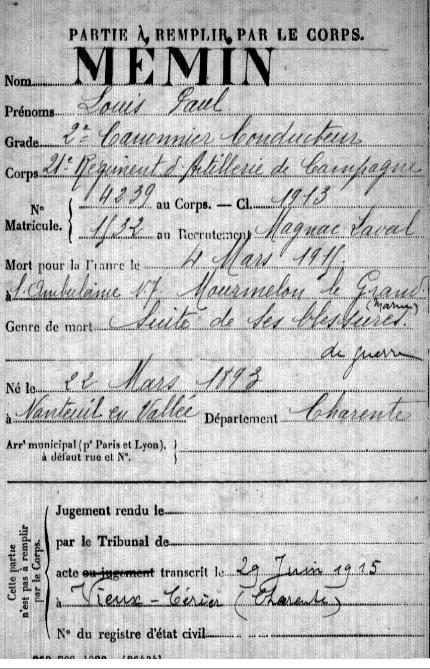 PARTIE À REMPLIR PAR LE CORPS.
Nom MÉMIN
Prénoms Louis Paul
Grade 2e Canonnier Conducteur
Corps 21e Regiment d'Artillerie de Campagne
N° Matricule. 4239 au Corps. — Cl. 1913
1532 au Recrutement Magnac Laval
Mort pour la France le 4 Mars 1915
à l'Ambulance N°7 Mourmelon le Grand (Marne)
Genre de mort Suite de ses blessures
de guerre
Né le 22 Mars 1893
à Nanteuil en Vallée Département Charente
Arrt municipal (pr Paris et Lyon),
à défaut rue et N°.
Cette partie n'est pas à remplir par le Corps.
Jugement rendu le
par le Tribunal de
acte ou jugement transcrit le 29 Juin 1915
à Vieux-Cérier (Charente)
N° du registre d'état civil